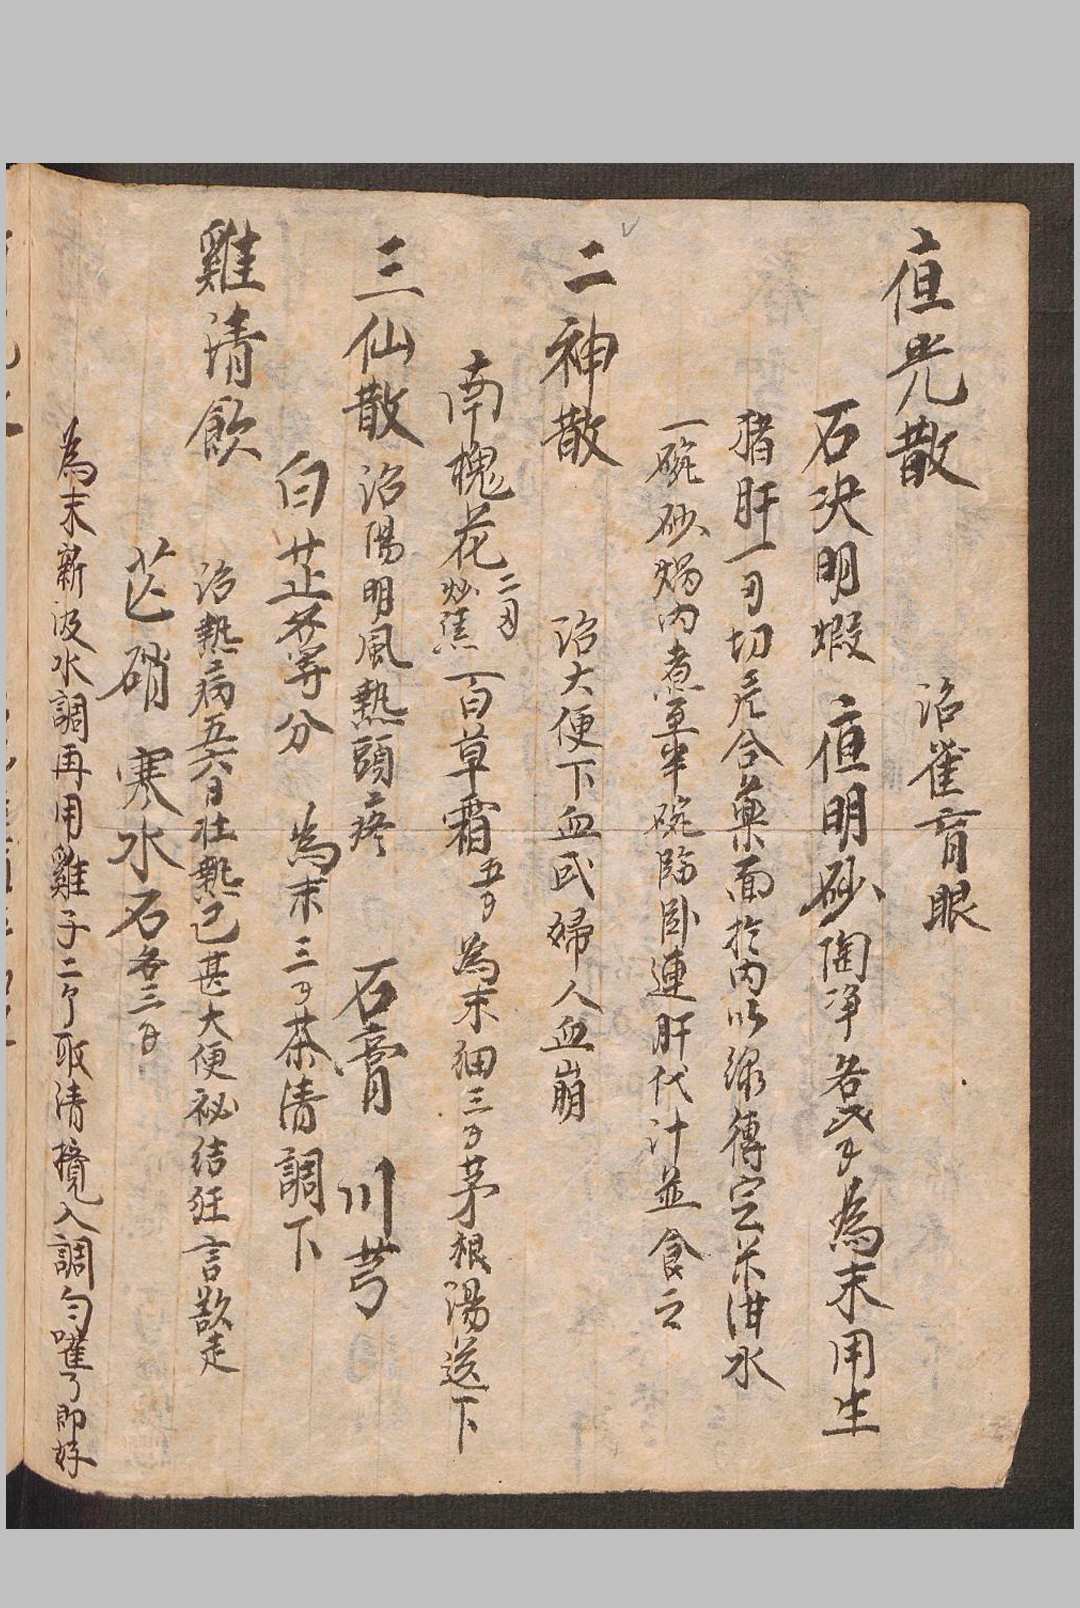 夜光散
治雀盲眼
石决明煆 夜明砂陶净各弍𠂆為末用生
猪肝一刃切片合薬面於内以線缚定米泔水
一碗砂焗内煮至半碗临卧連肝代汁並食之
二神散
治大便下血或婦人血崩
南槐花二刃炒焦 百草霜五𠂆 為末细三𠂆茅根湯送下
三仙散 治陽明風熱頭疼 石膏 川芎
白芷各等分 為末三𠂆茶清調下
雞清飲
治熱病五六日壮熱已甚大便祕结狂言欲走
芒硝 寒水石各三𠂆
為末新汲水調再用雞子二个取清攪入調匀嚾了即好